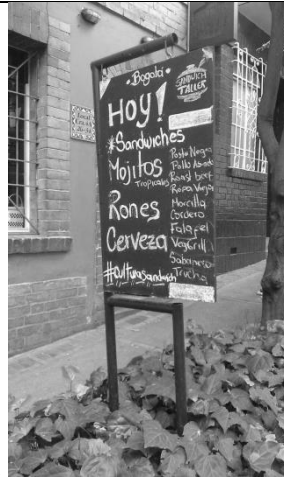 Bogotá
Hoy!
SANDWICH
TALLER
#Sandwiches
Mojitos
Tropicales
Rones
Cerveza
#Culturasandwich
Pasta Negra
Pollo Asado
Roast beef
Ropa Vieja
Morcilla
Cordero
Falafel
VegGrill
Sabanero
Trucha